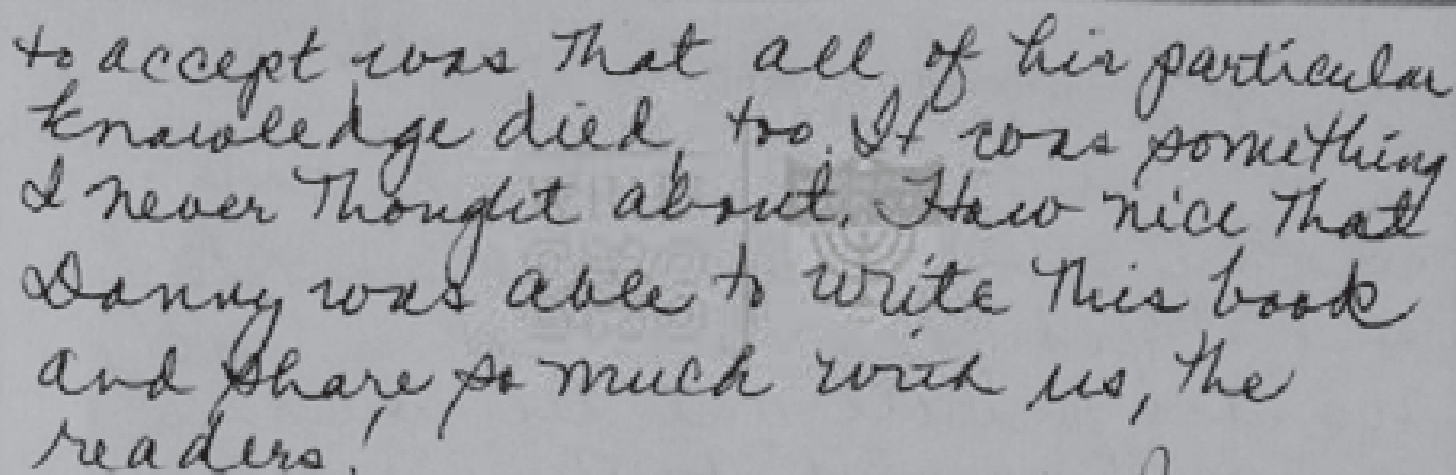 to accept was that all of his particular
knowledge died, too. It was something
I never thought about. How nice that
Danny was able to write this book
and share so much with us, the
readers!